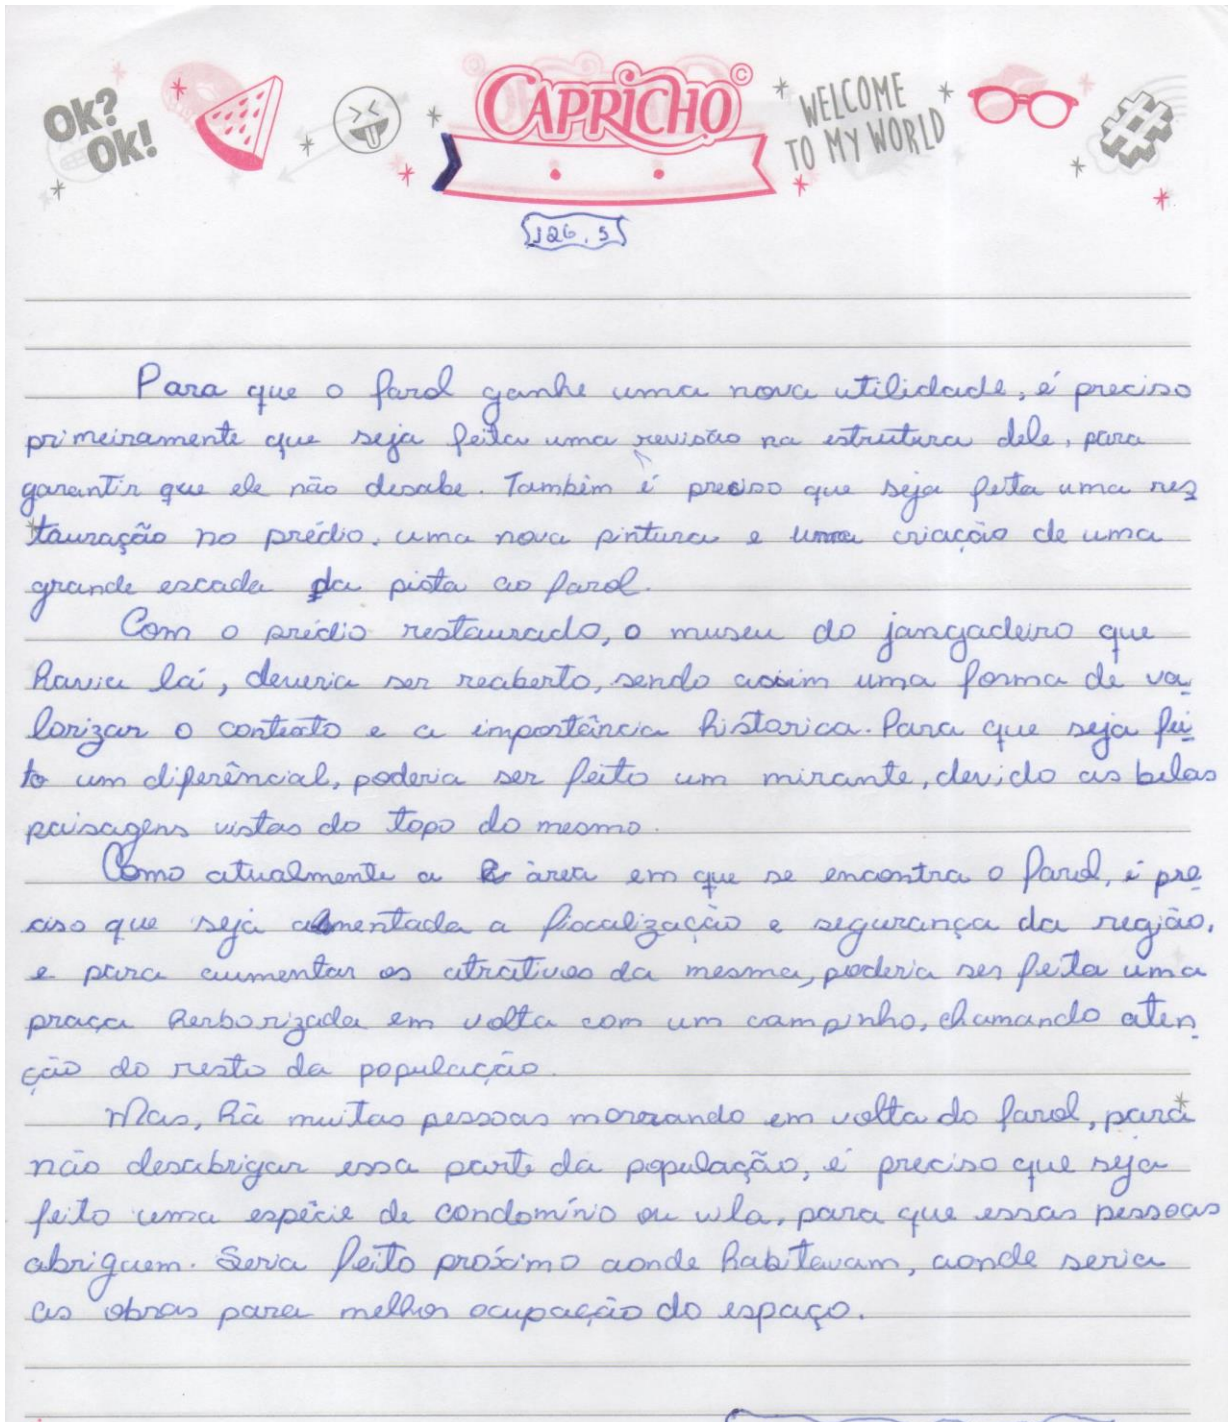 Ok?
Ok!
CAPRICHO©
WELCOME
TO MY WORLD
#
126.5
Para que o farol ganhe uma nova utilidade, é preciso
primeiramente que seja feita uma revisão na estrutura dele, para
garantir que ele não desabe. Também é preciso que seja feita uma res
tauração no prédio, uma nova pintura e uma criação de uma
grande escada da pista ao farol.
Com o prédio restaurado, o museu do jangadeiro que
havia lá, deveria ser reaberto, sendo assim uma forma de va
lorizar o contexto e a importância historica. Para que seja fei
to um diferêncial, poderia ser feito um mirante, devido as belas
paisagens vistas do topo do mesmo.
Como atualmente a área em que se encontra o farol, é pre
ciso que seja almentada a fiscalização e segurança da região,
e para aumentar os atrativos da mesma, poderia ser feita uma
praça herborizada em volta com um campinho, chamando aten
ção do resto da população.
Mas, há muitas pessoas morando em volta do farol, para
não desabrigar essa parte da população, é preciso que seja
feito uma espécie de condomínio ou vila, para que essas pessoas
abriguem. Seria feito próximo aonde habitavam, aonde seria
as obras para melhor ocupação do espaço.